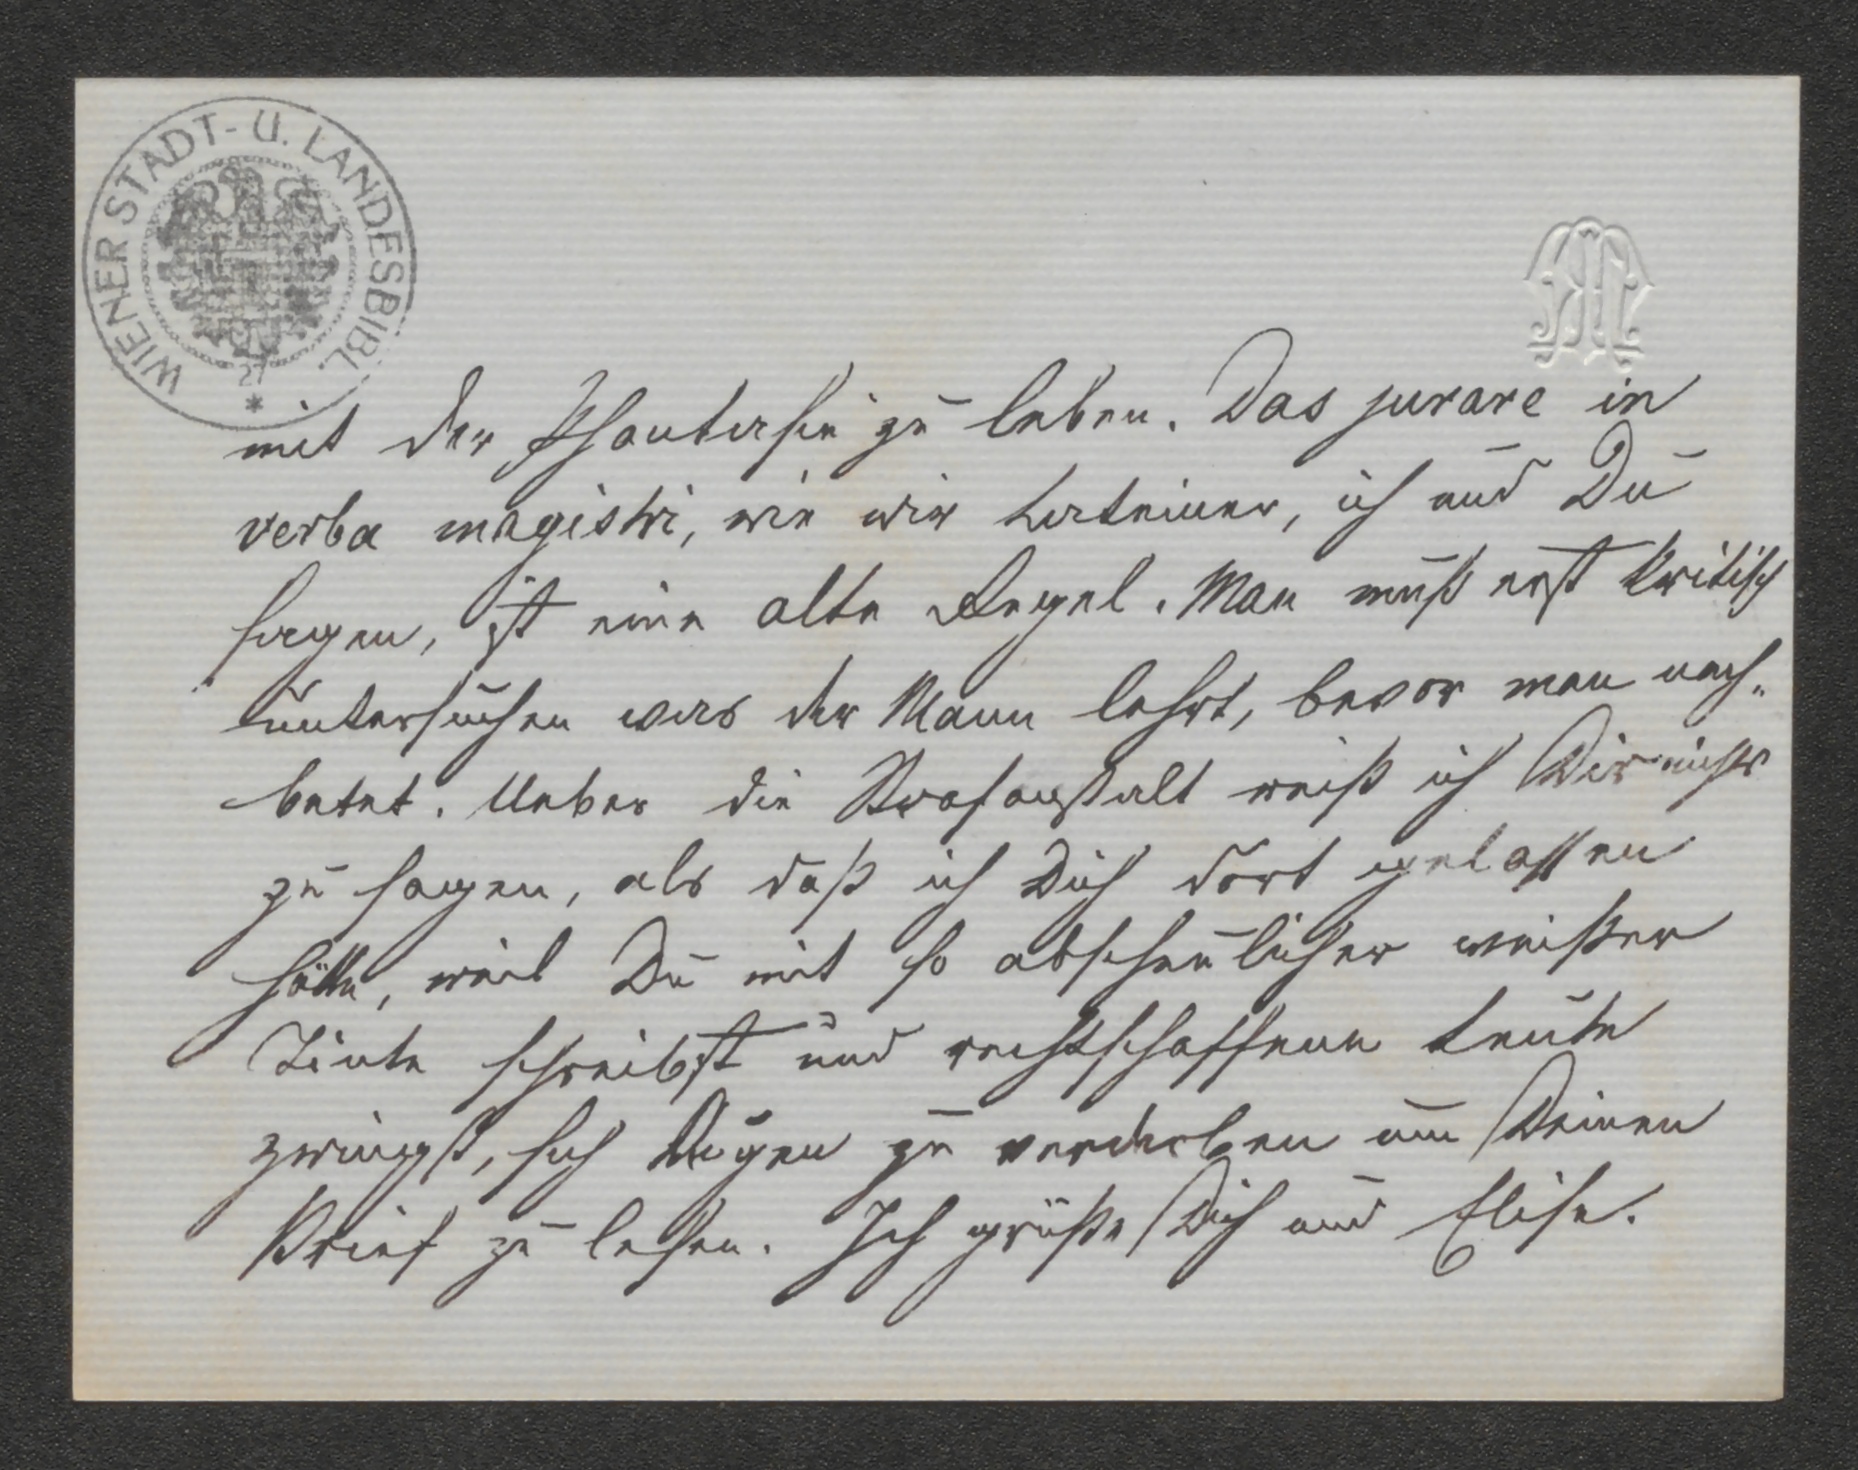 WIENER STADT- U. LANDESBIBL.
27
mit der Phantasie zu leben. Das jurare in
verba magistri, wie wir Lateiner, ich und Du
sagen, ist eine alte Regel. Man muß erst kritisch
untersuchen was der Mann lehrt, bevor man nach-
betet. Ueber die Strafanstalt weiß ich Dir nichts
zu sagen, als daß ich Dich dort gelassen
hätte, weil Du mit so abscheulicher weißer
Tinte schreibst und rechtschaffene Leute
zwingst, sich Augen zu verderben um Deinen
Brief zu lesen. Ich grüße Dich und Elise.